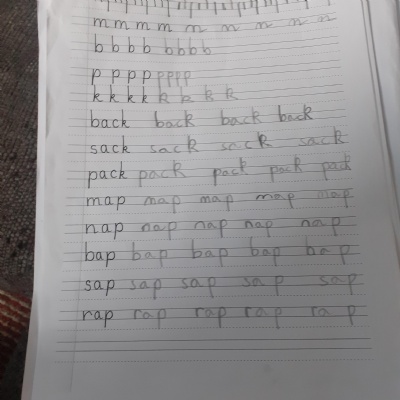 m m m m n n n n n
b b b b b b b b
p p p p p p p p
k k k k k k k k
back back back back
sack sack sack sack
pack pack pack pack pack
map map map map map
nap nap nap nap nap
bap bap bap bap bap
sap sap sap sap sap
rap rap rap rap rap